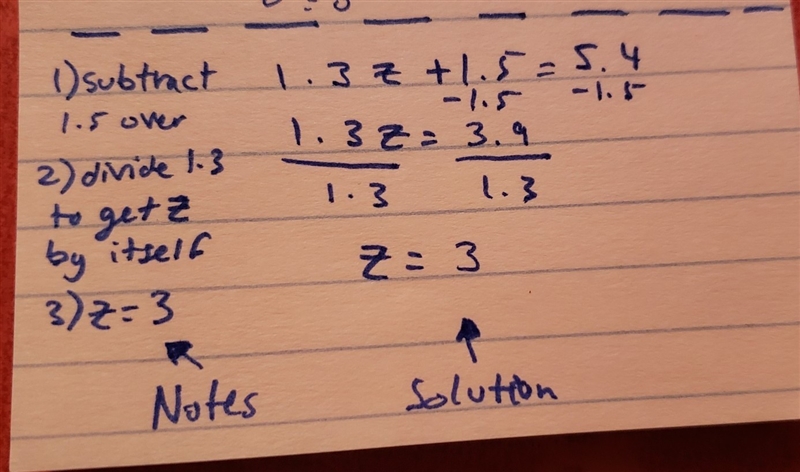 1) subtract
1.5 over
2) divide 1.3
to get z
by itself
3) z = 3
Notes
1.3 z + 1.5 = 5.4
-1.5 -1.5
1.3z = 3.9
1.3 1.3
z = 3
Solution